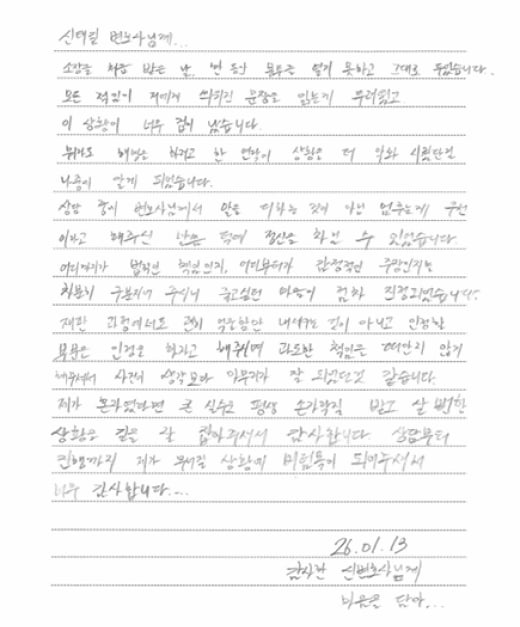 신태길 변호사님께...
소장을 처음 받은 날, 한 동안 봉투를 열지 못하고 그대로 두었습니다.
모든 책임이 저에게 쓰여진 문장을 읽는게 두려웠고
이 상황이 너무 겁이 났습니다.
뭐라도 해명을 하려고 한 연락이 상황을 더 악화 시켰단걸
나중에 알게 되었습니다.
상담 중에 변호사님께서 말을 더하는 것이 아닌 멈추는게 우선
이라고 해주신 말씀 덕에 정신을 차릴 수 있었습니다.
어디까지가 법적인 책임인지, 어디부터가 감정적인 주장인지를
차분히 구분지어 주시니 들고있던 마음이 점차 진정되었습니다.
재판 과정에서도 괜히 억울함만 내세우는 것이 아니고 인정할
부분은 인정을 하라고 해주시며 과도한 책임은 떠안지 않게
해주셔서 사건이 생각보다 마무리가 잘 되었던것 같습니다.
제가 혼자였다면 큰 실수로 평생 손가락질 받고 살 뻔한
상황을 길을 잘 잡아주셔서 감사합니다. 상담부터
진행까지 제가 무너질 상황에 버팀목이 되어주셔서
너무 감사합니다....
26.01.13
감사한 신변호사님께
마음을 담아...